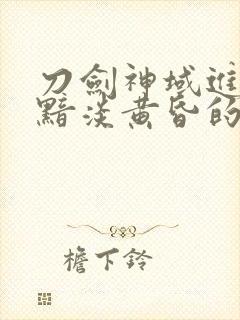 刀劍神域進
黯淡黃昏的
檐下鈴